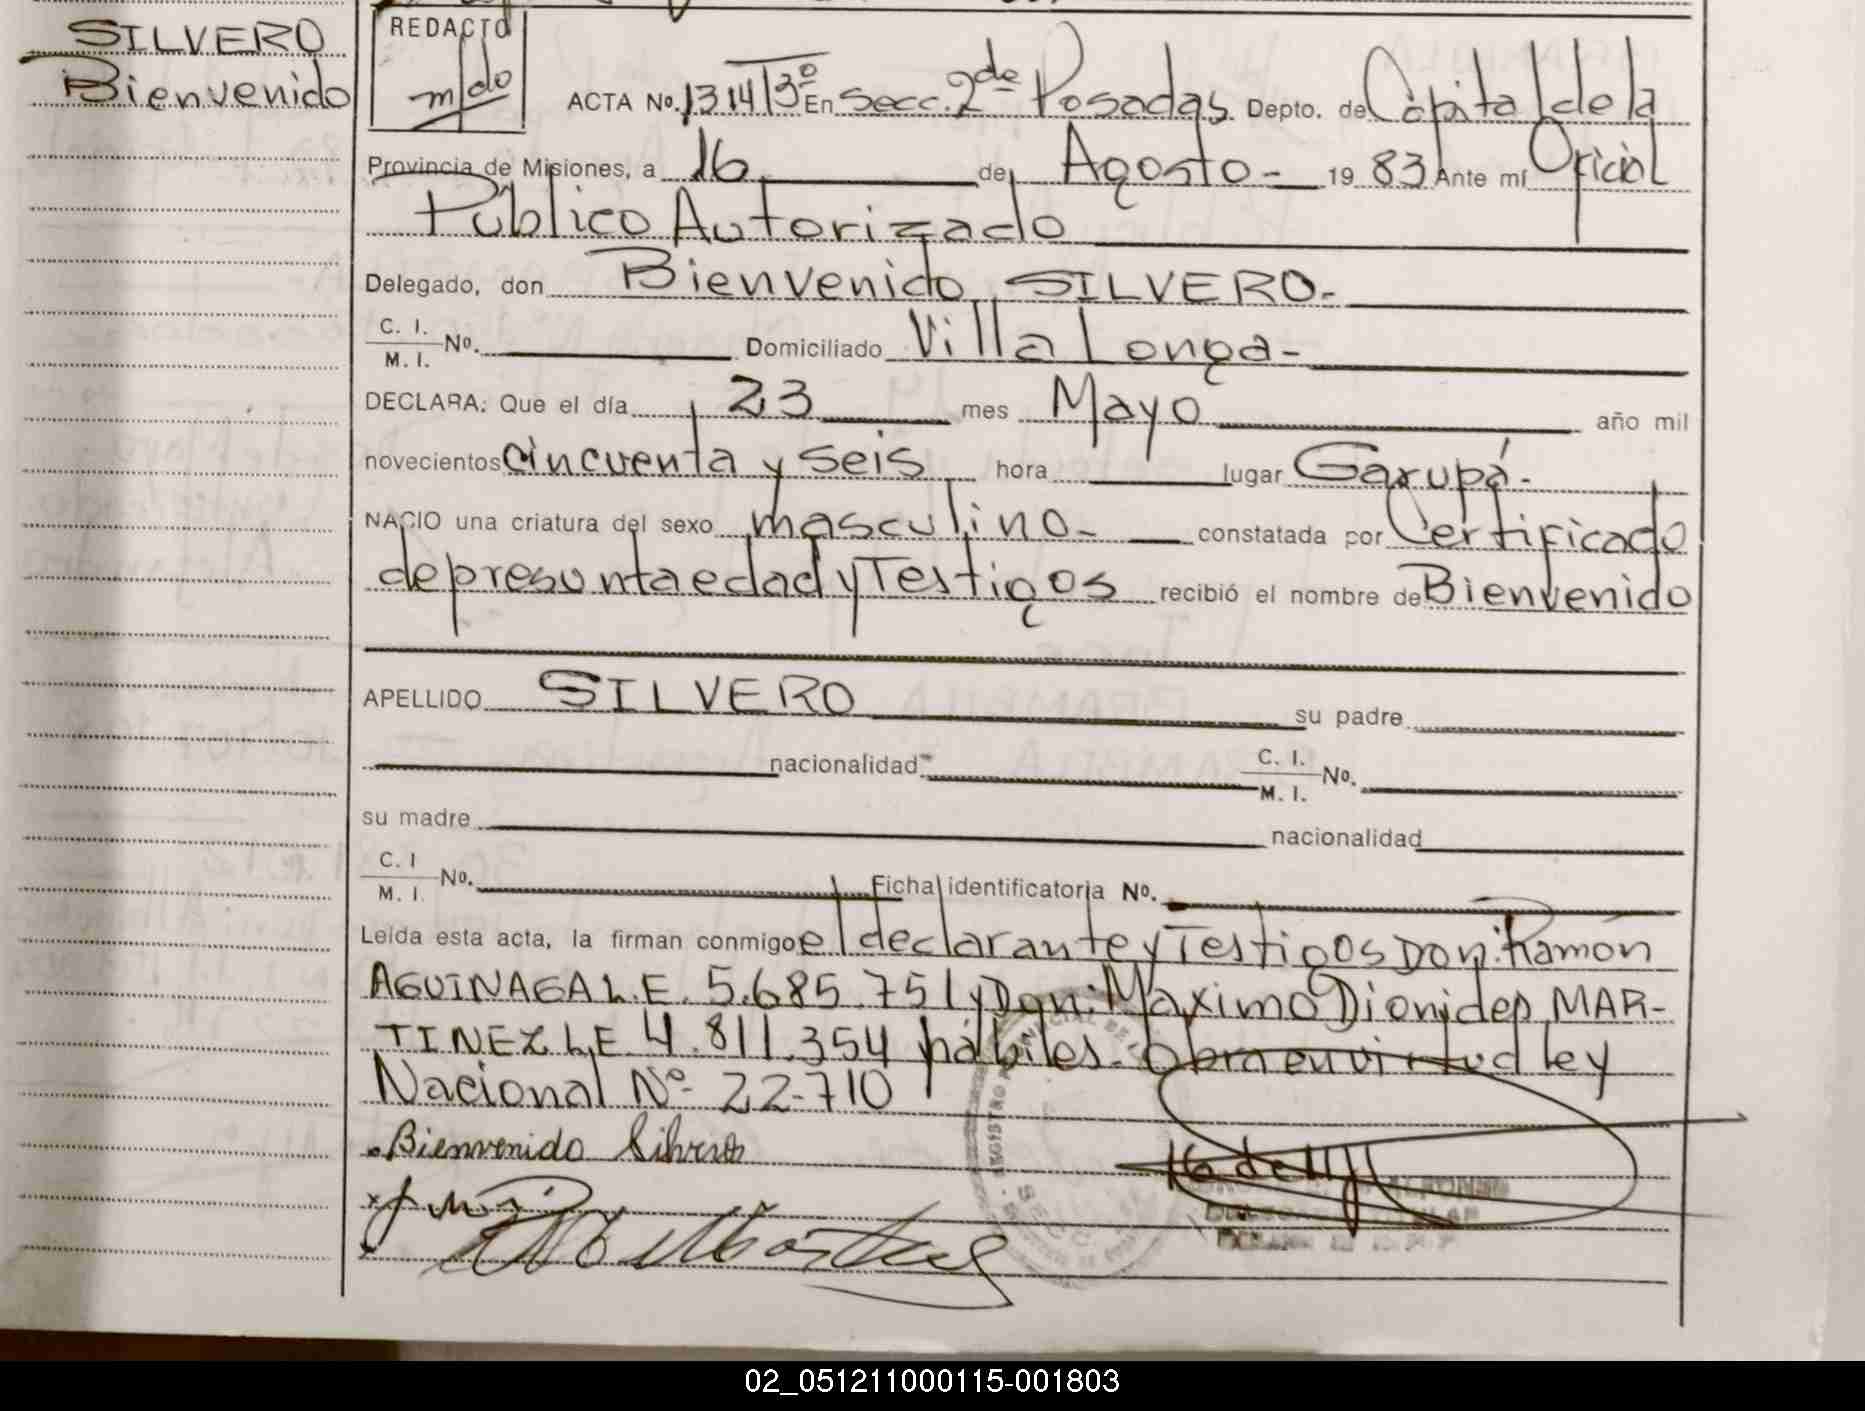 SILVERO
Bienvenido
REDACTO
ACTA No. 1314 T3º En Secc. 2da Posadas Depto. de Capital de la
Provincia de Misiones, a 16 de Agosto - 1983 Ante mí Oficial
Público Autorizado
Delegado, don Bienvenido SILVERO.-
C. I.
M. I. No. Domiciliado Villa Longa-
DECLARA: Que el día 23 mes Mayo año mil
novecientos cincuenta y seis hora lugar Garupá.-
NACIO una criatura del sexo masculino- constatada por Certificado
de presunta edad y Testigos recibió el nombre de Bienvenido
APELLIDO SILVERO su padre
nacionalidad C. I.
M. I. No.
su madre nacionalidad
C. I
M. I. No. Ficha identificatoria No.
Leída esta acta, la firman conmigo el declarante y Testigos Don: Ramón
AGUINAGA L.E. 5.685.751 y Don: Maximo Dionides MAR-
TINEZ L.E 4.811.354 hábiles.- Obra en virtud ley
Nacional Nº 22-710
Bienvenido Silvero
02_051211000115-001803